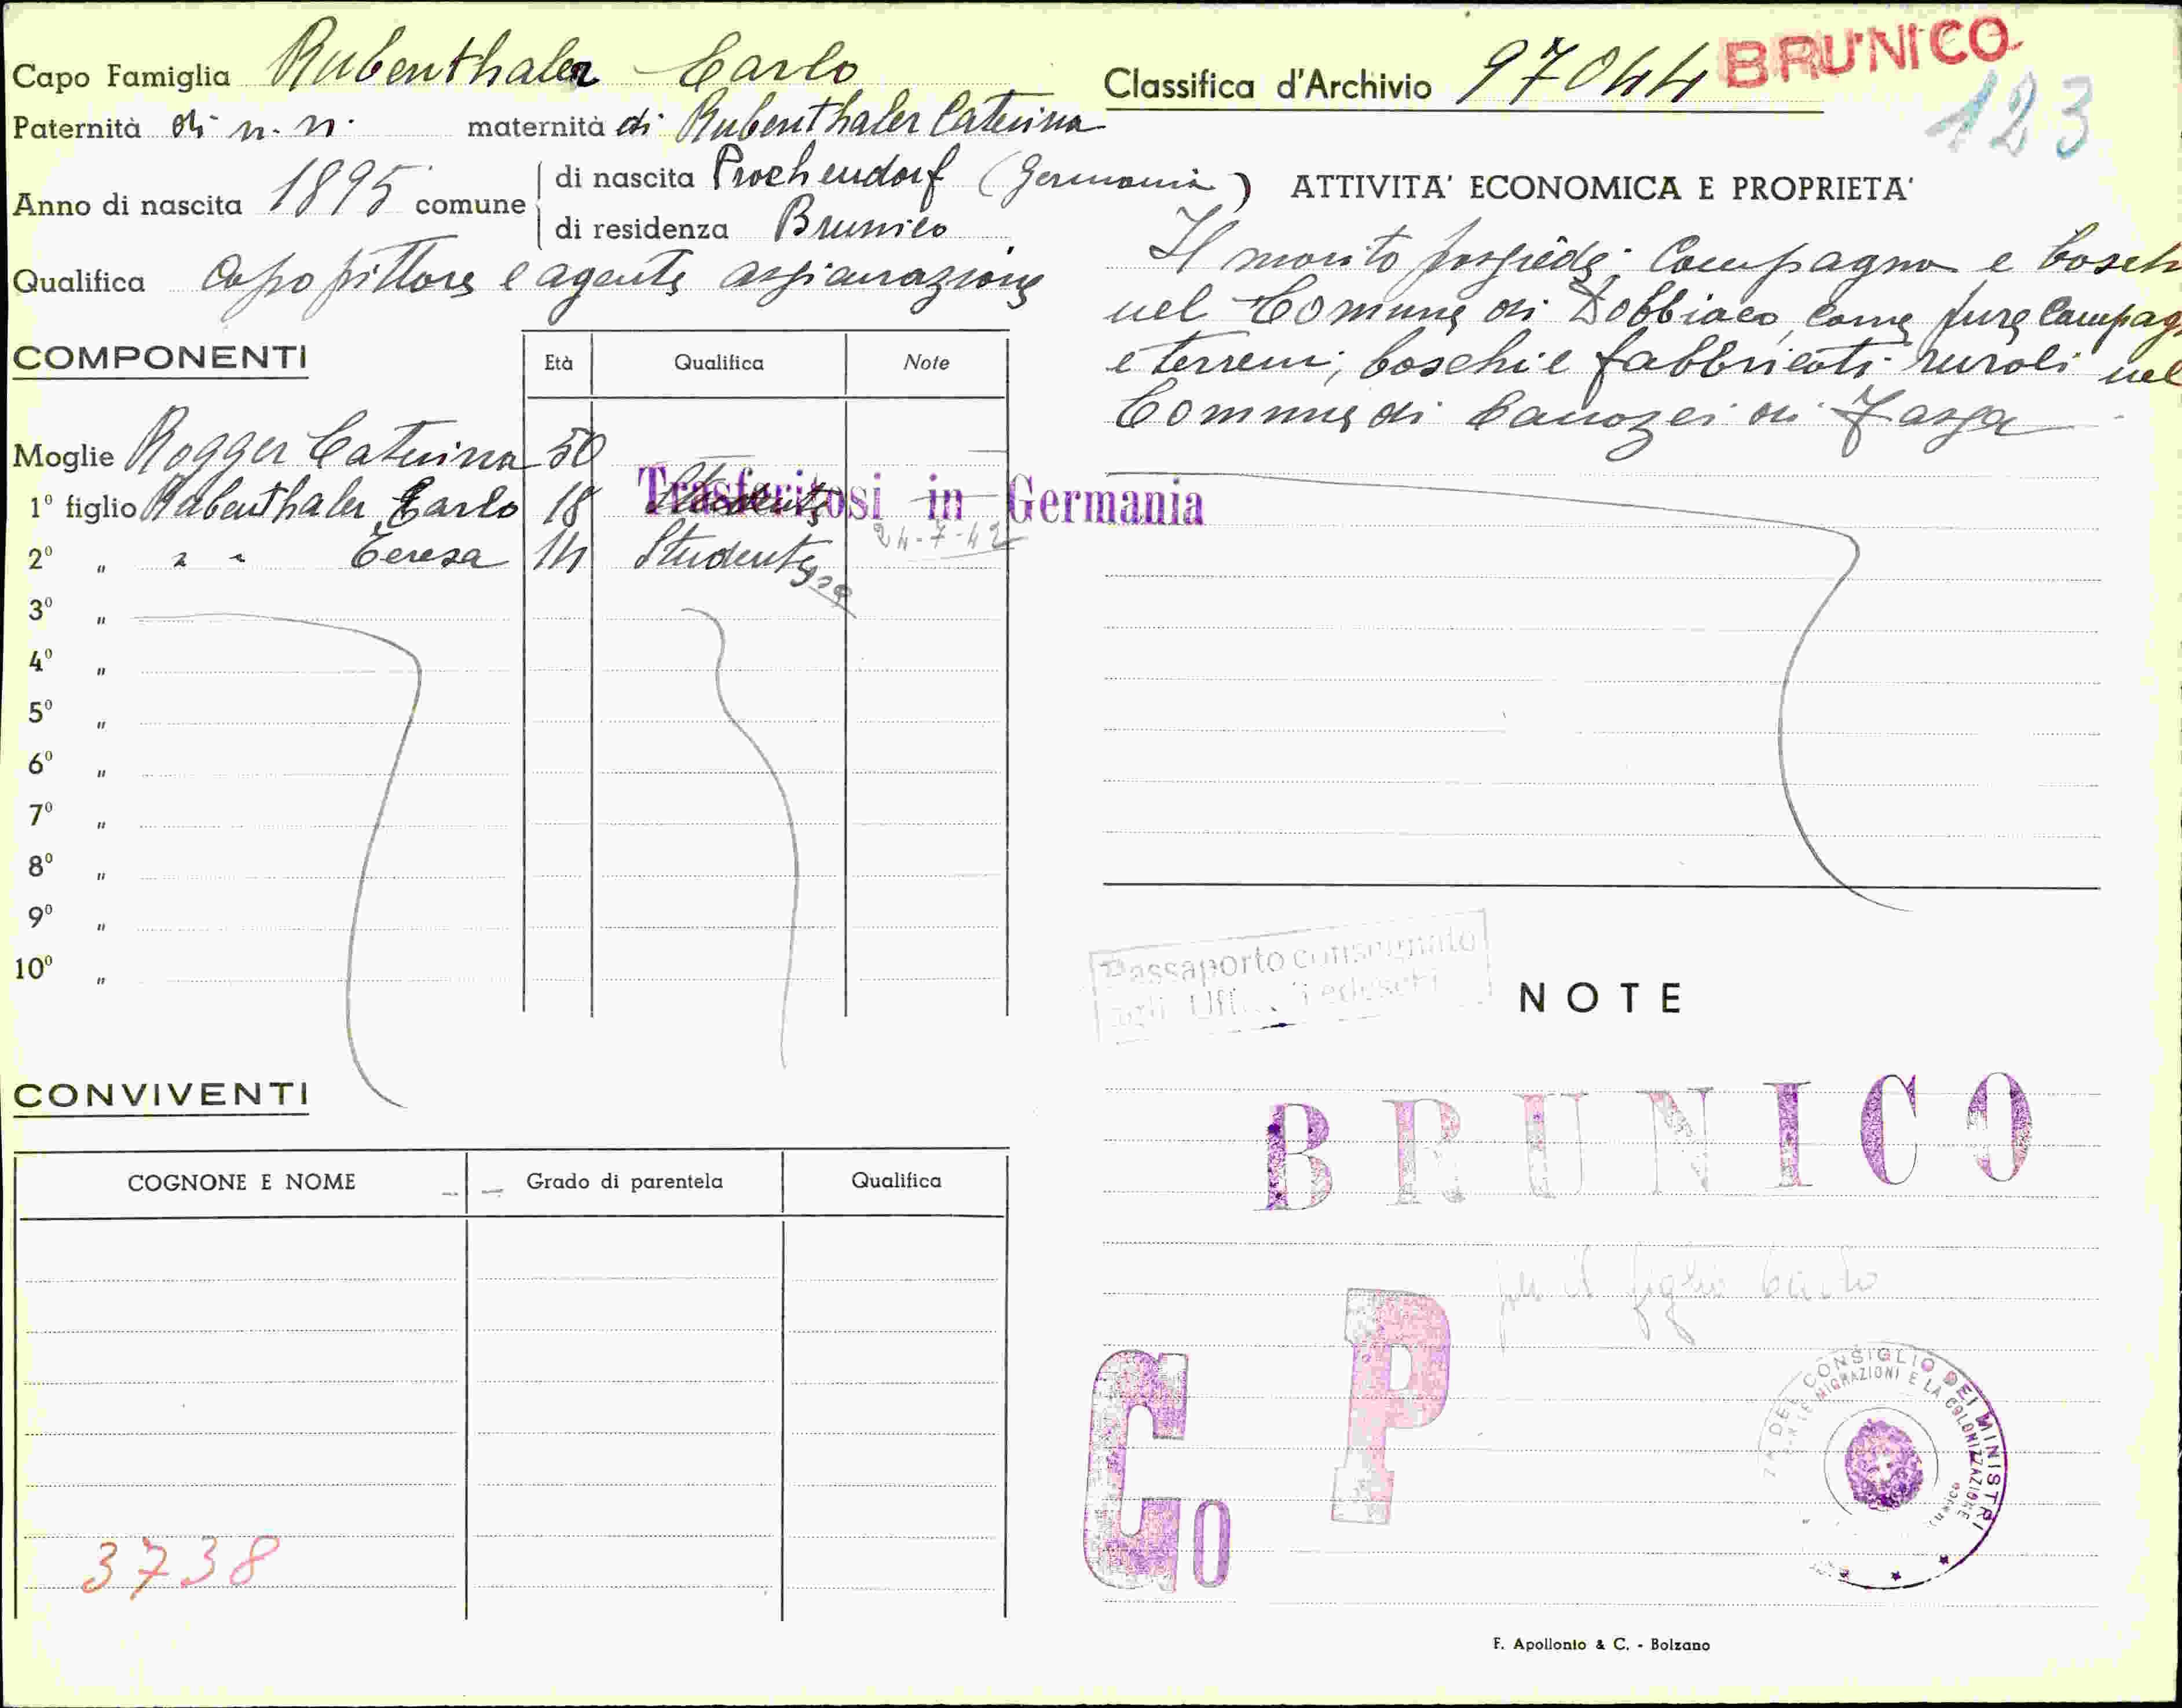 Capo Famiglia Rubenthaler Carlo
Paternità di n. n. maternità di Rubenthaler Caterina
Anno di nascita 1895 comune di nascita Prochendorf (Germania)
di residenza Brunico
Qualifica Capo pittore e agente
COMPONENTI
Età Qualifica Note
Moglie Rogger Caterina 50
1° figlio Rubenthaler Carlo 18
Trasferitosi in Germania
24-7-42
2° " " " Teresa 14 Studente
3° "
4° "
5° "
6° "
7° "
8° "
9° "
10° "
CONVIVENTI
COGNONE E NOME Grado di parentela Qualifica
3738
Classifica d'Archivio 97044 BRUNICO
123
ATTIVITA' ECONOMICA E PROPRIETA'
Il marito possiede: Campagna e boschi
nel Comune di Dobbiaco, come pure Campagn
e terreni; boschi e fabbricati rurali nel
Comune di Canazei di Fassa
Passaporto consegnato
agli Uffici Tedeschi
NOTE
BRUNICO
per il figlio Carlo
P
Go
DEL CONSIGLIO DEI MINISTRI
MIGRAZIONI E LA COLONIZZAZIONE
F. Apollonio & C. - Bolzano